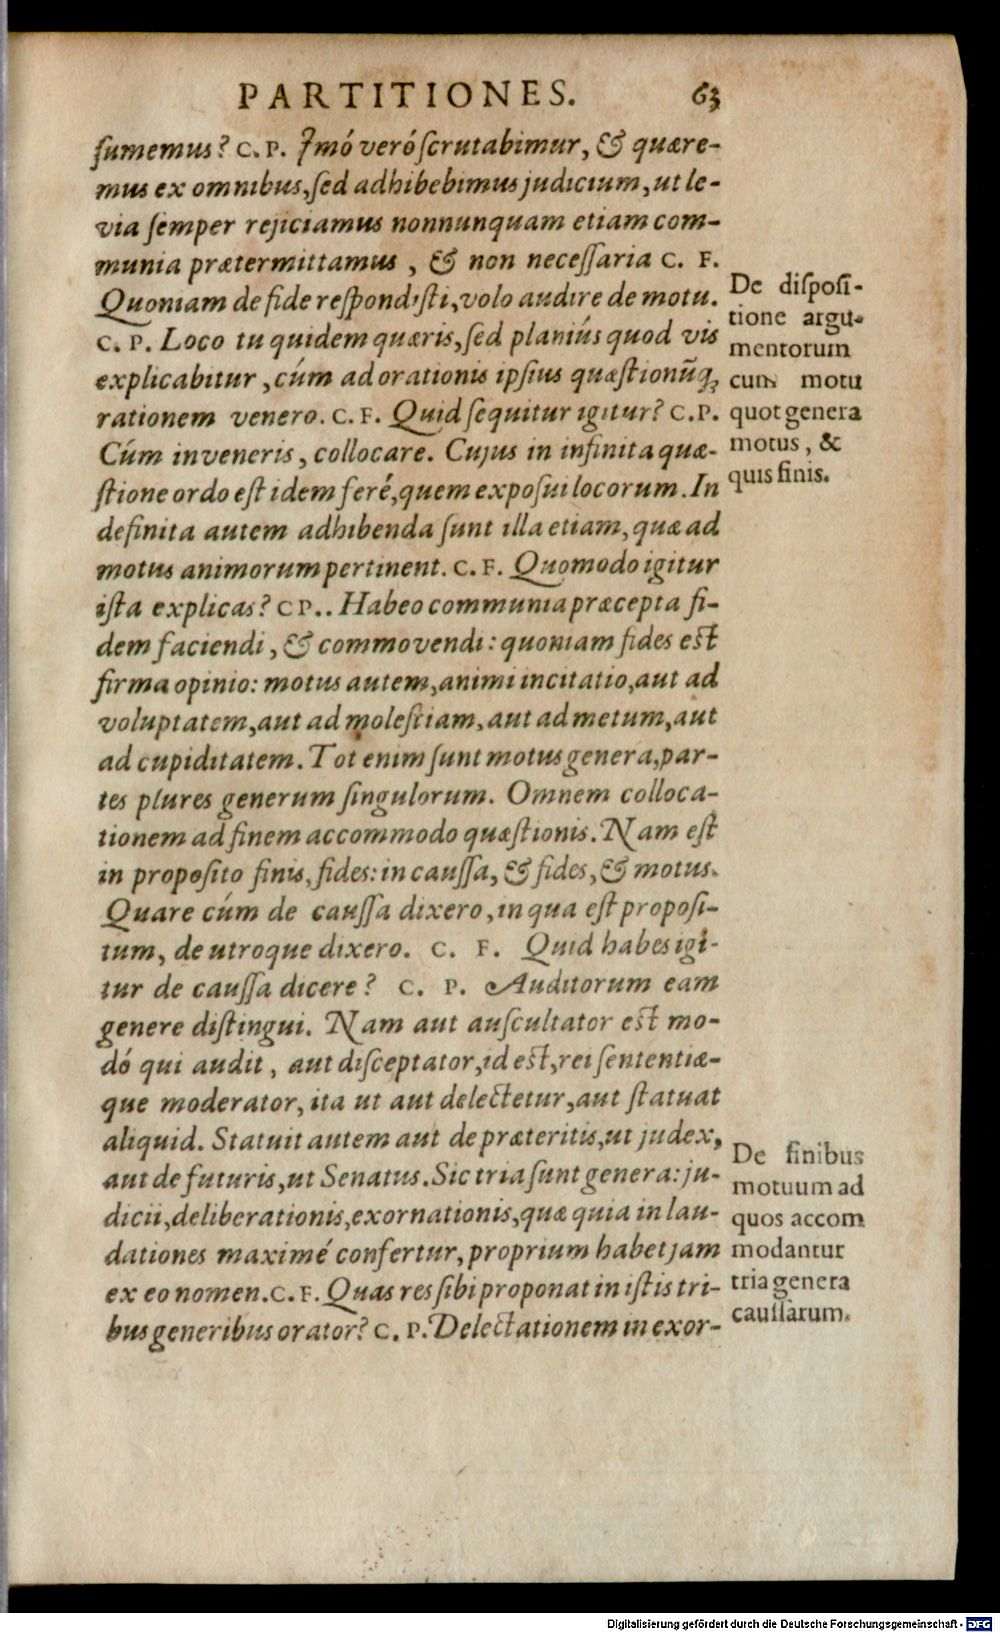 PARTITIONES. 63
sumemus? C. P. Imó veró scrutabimur, & quære-
mus ex omnibus, sed adhibebimus judicium, ut le-
via semper rejiciamus nonnunquam etiam com-
munia prætermittamus, & non necessaria C. F.
Quoniam de fide respondisti, volo audire de motu.
C. P. Loco tu quidem quæris, sed planiús quod vis
explicabitur, cúm ad orationis ipsius quæstionũq̃
rationem venero. C. F. Quid sequitur igitur? C. P.
Cúm inveneris, collocare. Cujus in infinita quæ-
stione ordo est idem feré, quem exposui locorum. In
definita autem adhibenda sunt illa etiam, quæ ad
motus animorum pertinent. C. F. Quomodo igitur
ista explicas? C P.. Habeo communia præcepta fi-
dem faciendi, & commovendi: quoniam fides est
firma opinio: motus autem, animi incitatio, aut ad
voluptatem, aut ad molestiam, aut ad metum, aut
ad cupiditatem. Tot enim sunt motus genera, par-
tes plures generum singulorum. Omnem colloca-
tionem ad finem accommodo quæstionis. Nam est
in proposito finis, fides: in caussa, & fides, & motus.
Quare cúm de caussa dixero, in qua est proposi-
tum, de utroque dixero. C. F. Quid habes igi-
tur de caussa dicere? C. P. Auditorum eam
genere distingui. Nam aut auscultator est mo-
dó qui audit, aut disceptator, id est, rei sententiæ-
que moderator, ita ut aut delectetur, aut statuat
aliquid. Statuit autem aut de præteritis, ut judex,
aut de futuris, ut Senatus. Sic tria sunt genera: ju-
dicii, deliberationis, exornationis, quæ quia in lau-
dationes maximé confertur, proprium habet jam
ex eo nomen. C. F. Quas res sibi proponat in istis tri-
bus generibus orator? C. P. Delectationem in exor-
De disposi-
tione argu-
mentorum
cum motu
quot genera
motus, &
quis finis.
De finibus
motuum ad
quos accom
modantur
tria genera
caussarum.
Digitalisierung gefördert durch die Deutsche Forschungsgemeinschaft - DFG